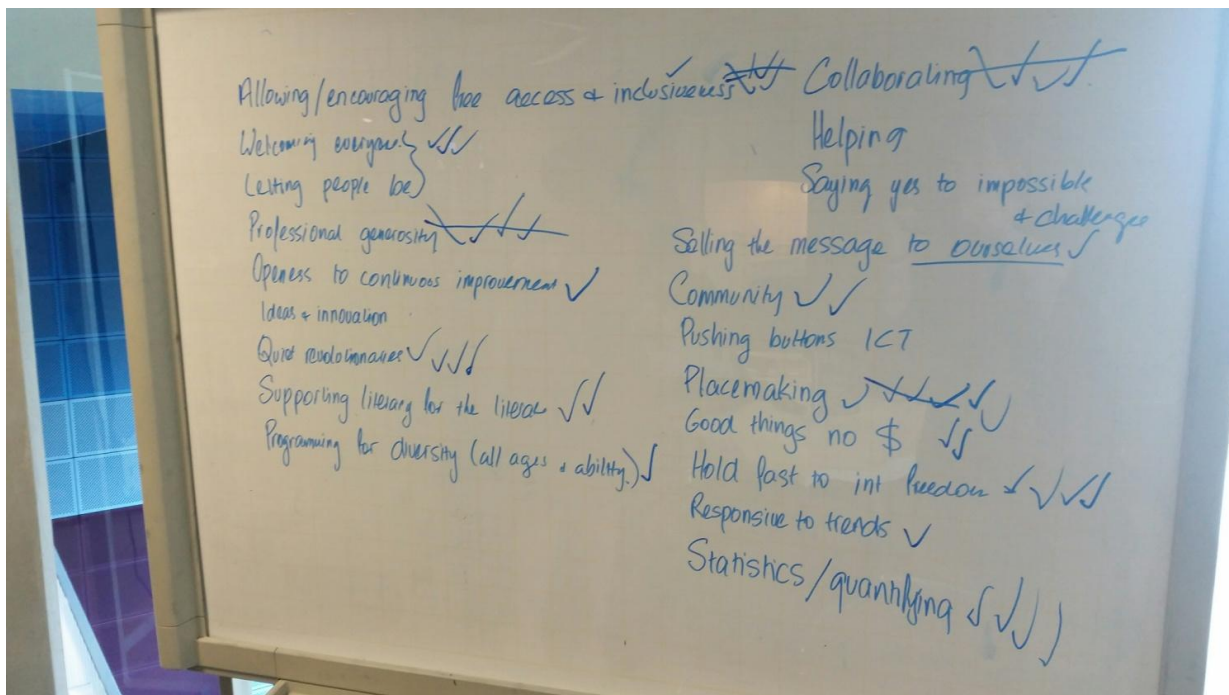 Allowing/encouraging free access & inclusiveness
Welcoming everyone
Letting people be
Professional generosity
Openess to continuous improvement
Ideas & innovation
Quiet revolutionaries
Supporting literacy for the literate
Programming for diversity (all ages & ability)
Collaborating
Helping
Saying yes to impossible
& challenges
Selling the message to ourselves
Community
Pushing buttons ICT
Placemaking
Good things no $
Hold fast to int freedom
Responsive to trends
Statistics/quantifying